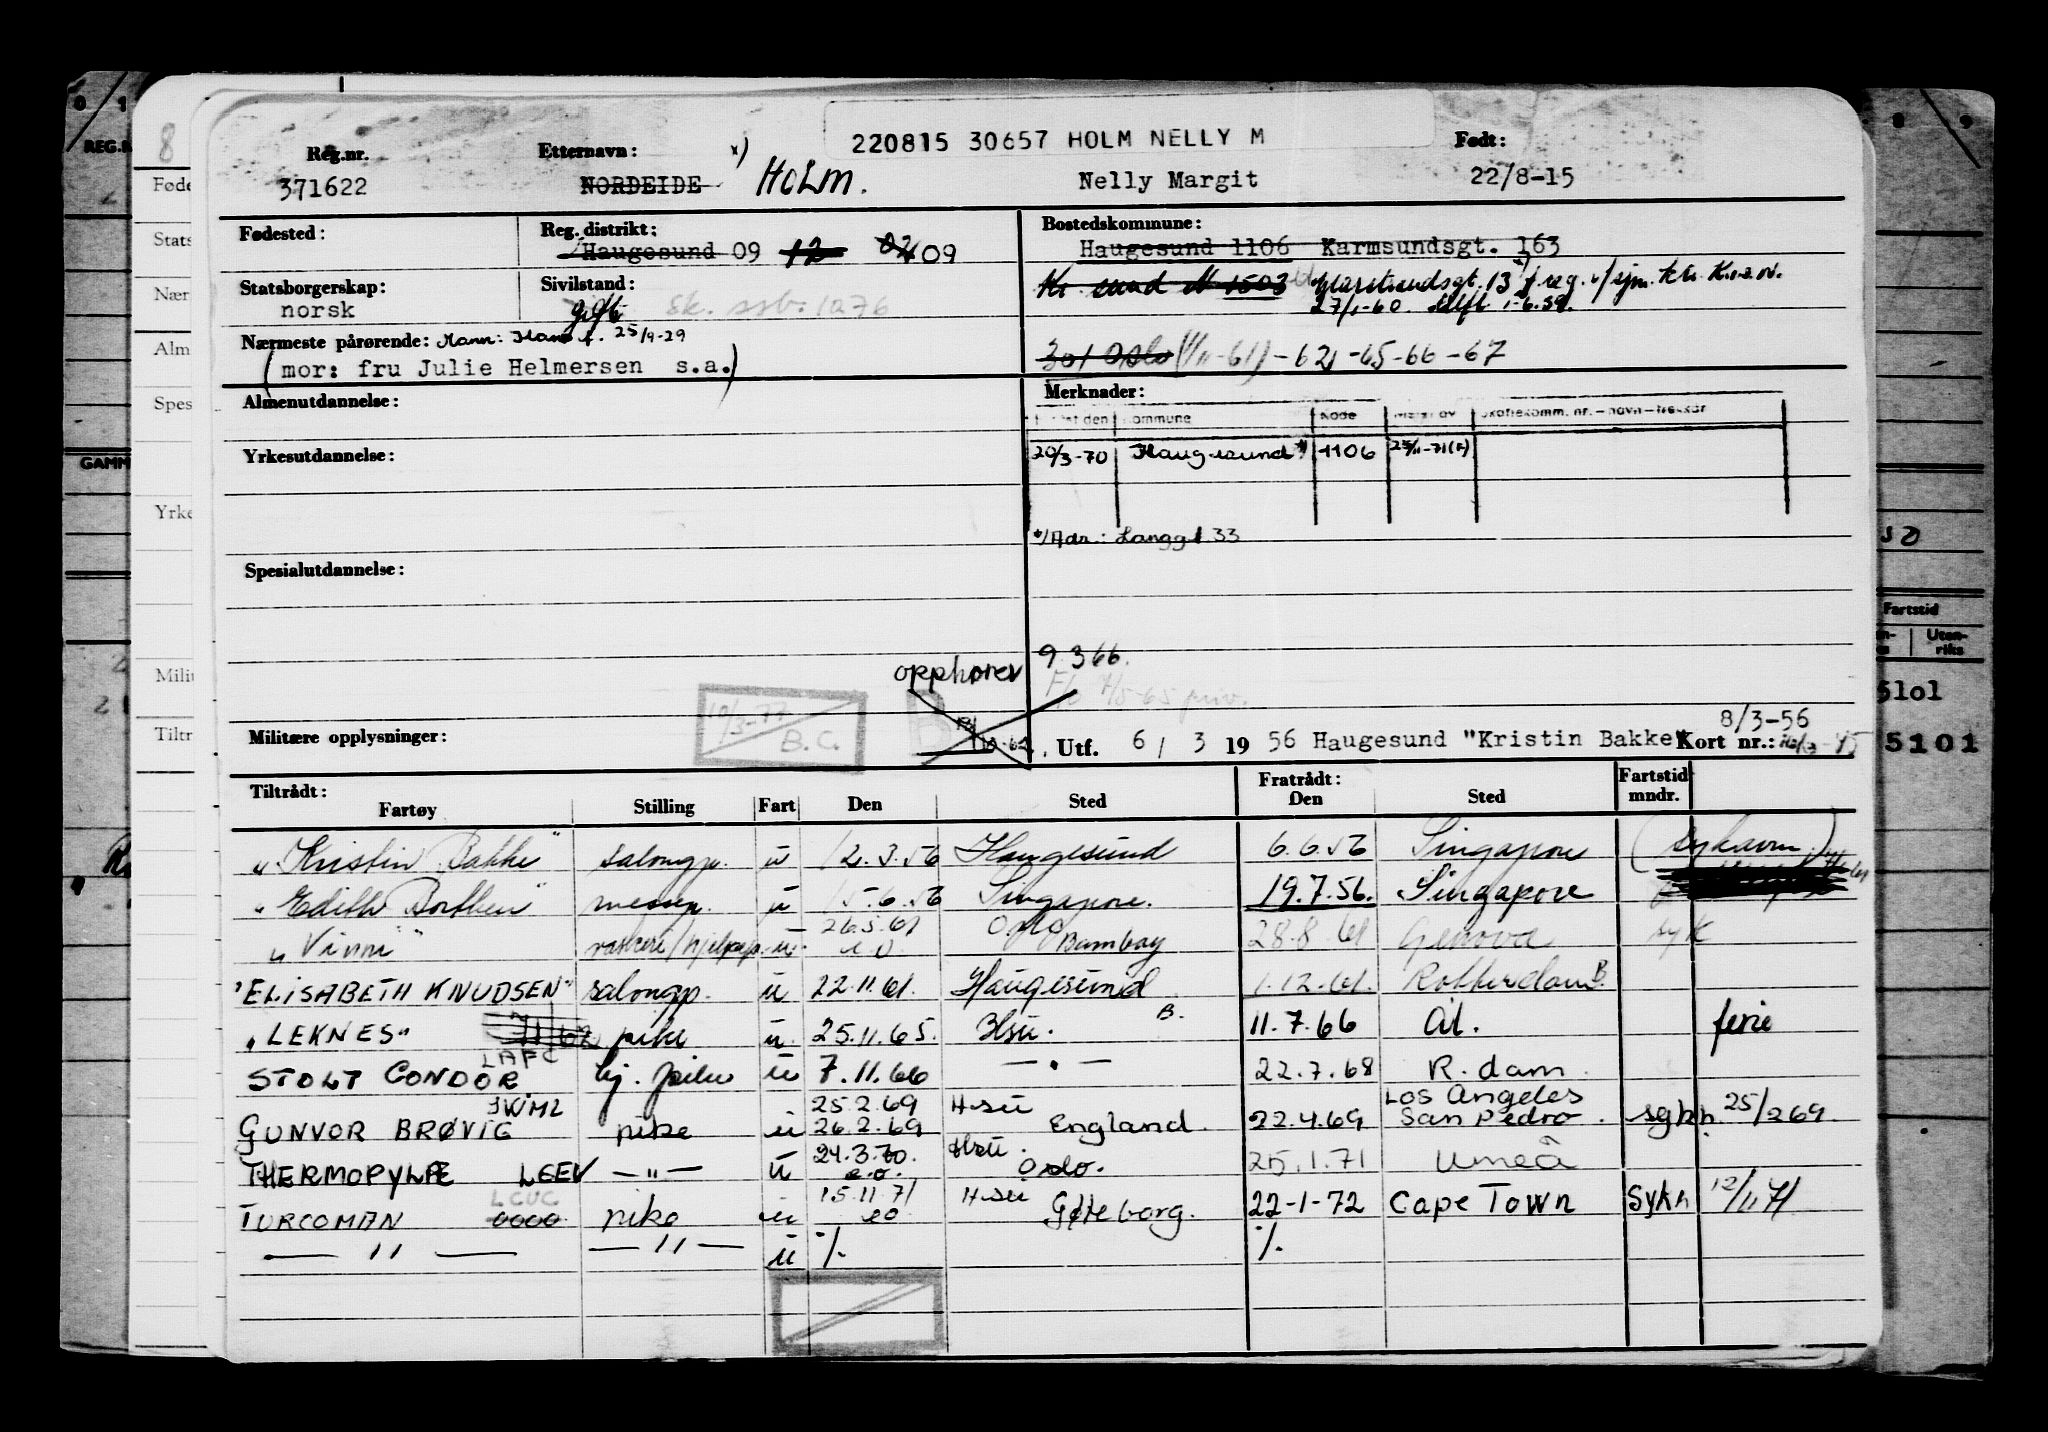 220815 30657 HOLM NELLY M
Reg.nr. Etternavn: x) Født:
371622 NORDEIDE HOLM. Nelly Margit 22/8-15
Fødested: Reg. distrikt: Bostedskommune:
Haugesund 09 12 02 09 Haugesund 1106 Karmsundsgt. 163
Statsborgerskap: Sivilstand: Kr. sund N 1503
norsk gift sk. 1276 27/1-60. 1-6.59.
Nærmeste pårørende: Mann: 25/9-29
(mor: fru Julie Helmersen s.a.) 301 Oslo (1/11-61) -62 -65 -66 -67
Almenutdannelse: Merknader:
den kommune kode skattekomm. nr. - navn - trekkår
Yrkesutdannelse: 20/3-70 Haugesund 1106 25/11-71
*/Adr.: Langgt 33
Spesialutdannelse:
opphører 9.3 66.
7/5-65 priv.
10/3-77
B.C.
B
Militære opplysninger: Utf. 6 / 3 19 56 Haugesund "Kristin Bakke" 8/3-56
Kort nr.:
Tiltrådt: Fratrådt: Fartstid
Fartøy Stilling Fart Den Sted Den Sted mndr.
"Kristin Bakke" salongp. u 12.3.56 Haugesund 6.6.56 Singapore (sykavm.)
"Edith Borthen" messep. u 15.6.56 Singapore. 19.7.56. Singapore
"Vinni" u 26.5.61 Oslo Bombay 28.8.61 Genova syk
"ELISABETH KNUDSEN" salongp. u 22.11.61. Haugesund 1.12.61. Rotterdam B.
"LEKNES" pike u 25.11.65. Hsu. B. 11.7.66 Ål. ferie
STOLT CONDOR LAFC hj. pike u 7.11.66 — " — 22.7.68 R.dam
GUNVOR BRØVIG pike u 25.2.69 26.2.69 H-su England. 22.4.69 Los Angeles San Pedro. 25/2 69.
THERMOPYLÆ LEEV — " — u 24.3.70. e.o. Hsu. Oslo. 25.1.71 Umeå
TURCOMAN LCUC pike u 15.11.71 eo H-su Gøteborg. 22-1-72 Cape Town Sykh 12/11 71
— " — — " — u %. %.
8
REG.N
Føde
Stats
Nær
Alm
Spes
GAMM
Yrke
Milit
Tiltr
0 1
8 9
Fartstid
Uten-
riks
5lol
5101